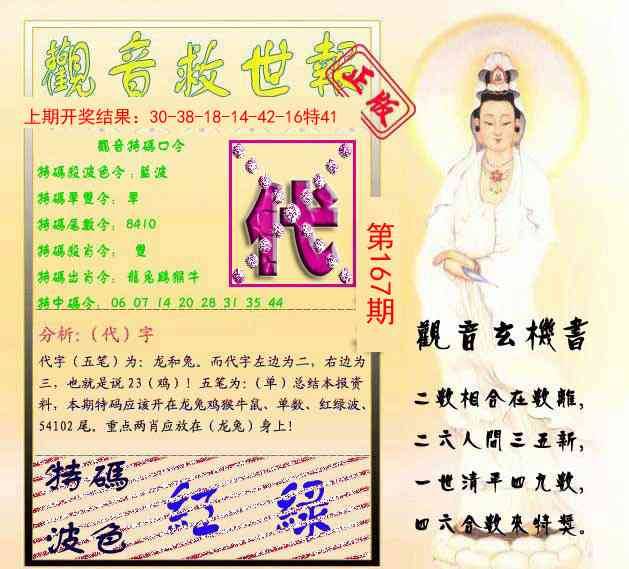 觀音救世報
正版
上期开奖结果：30-38-18-14-42-16特41
觀音特碼口令
特碼殺波色令：藍波
特碼單雙令：單
特碼尾數令：8410
特碼殺肖令：雙
特碼出肖令：龍兔鷄猴牛
特中碼令：06 07 14 20 28 31 35 44
代
第167期
分析：（代）字
代字（五笔）为：龙和兔。而代字左边为二，右边为
三，也就是说23（鸡）！五笔为：（单）总结本报资
料，本期特码应该开在龙兔鸡猴牛鼠、单数、红绿波、
54102尾。重点两肖应放在（龙兔）身上！
特碼
波色
紅 綠
觀音玄機書
二數相合在數離，
二六人間三五新，
一世清平四九數，
四六合數來特獎。